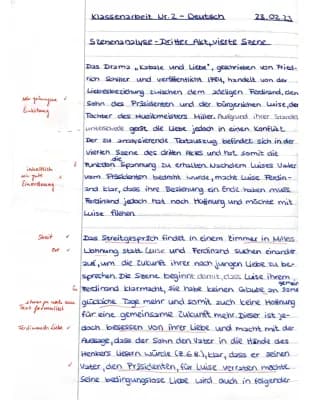 Klassenarbeit Nr. 2 - Deutsch 28.02.23
Szenenanalyse - Dritter Akt, vierte Szene
Das Drama „Kabale und Liebe", geschrieben von Fried-
rich Schiller und veröffentlicht 1784, handelt von der
Liebesbeziehung zwischen dem adeligen Ferdinand, den
Sohn des Präsidenten und der bürgerlichen Luise, der
Tochter des Musikmeisters Miller. Aufgrund ihrer Standes
unterschiede gerät die Liebe jedoch in einen Konflikt.
Der zu analysierende Textauszug befindet sich in der
vierten Szene des dritten Aktes und hat somit die
die
Funktion Spannung zu erhalten. Nachdem Luises Vater
vom Präsidenten bedroht wurde, macht Luise Ferdin-
and klar, dass ihre Beziehung ein Ende haben muss.
Ferdinand jedoch hat noch Hoffnung und möchte mit
Luise fliehen.
Das Streitgespräch findet in einem Zimmer in Millers
Wohnung statt. Luise und Ferdinand suchen einander
auf, um die Zukunft ihrer noch jungen Liebe zu be-
sprechen. Die Szene beginnt damit, dass Luise ihrem
Ferdinand klarmacht, sie habe keinen Glaube an
glückliche Tage mehr und somit auch keine Hoffnung
für eine gemeinsame Zukunft mehr. Dieser ist je-
doch besessen von ihrer Liebe und macht mit der
Aussage, dass er den Vater in die Hände des
Henkers liefern würde klar, dass er seinen
Vater, den Präsidenten, für Luise verraten möchte.
Seine bedingungslose Liebe wird auch in folgender
Einleitung
inhaltlich
sehr gute
Einordnung
Streit
Ort
Ferdinands Liebe